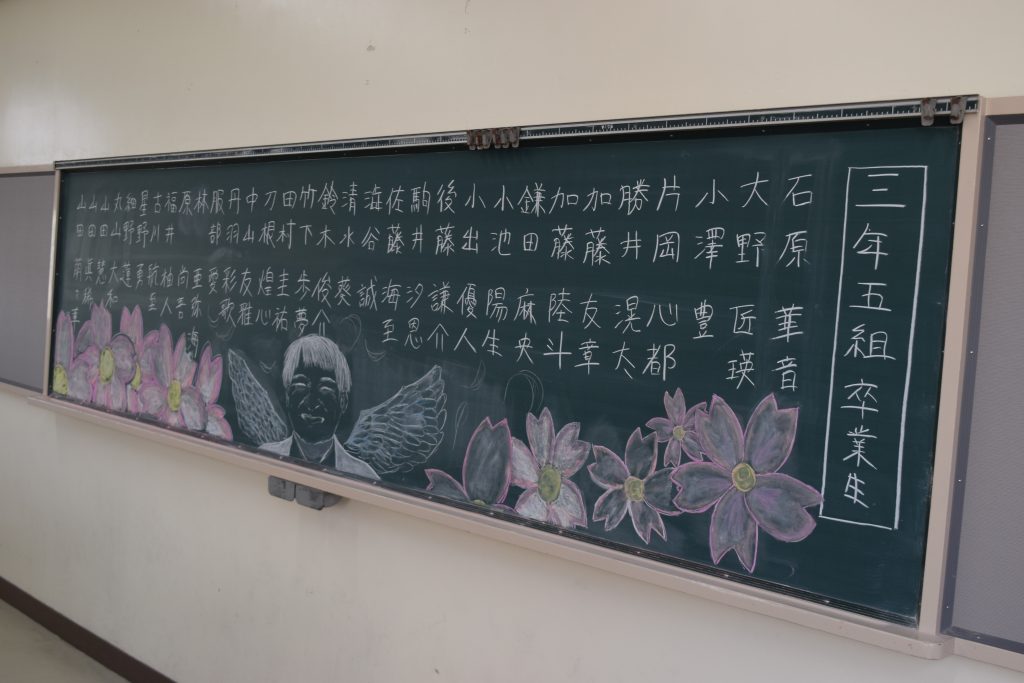 三年五組 卒業生
石原 華音
大野 匠瑛
小澤 豊
片岡 心都
勝井 滉太
加藤 友章
加藤 陸斗
鎌田 麻央
小池 陽生
小出 優人
後藤 謙介
駒井 汐恩
佐藤 海至
海谷 誠
清水 葵
鈴木 俊介
竹下 歩夢
田村 圭祐
刀根 煌心
中山 友雅
丹羽 彩歌
服部 愛
林 亜弥海
原 尚吾
福井 柚人
古
星野 勇
細野
丸山 大
山田 慧和
山田
山田